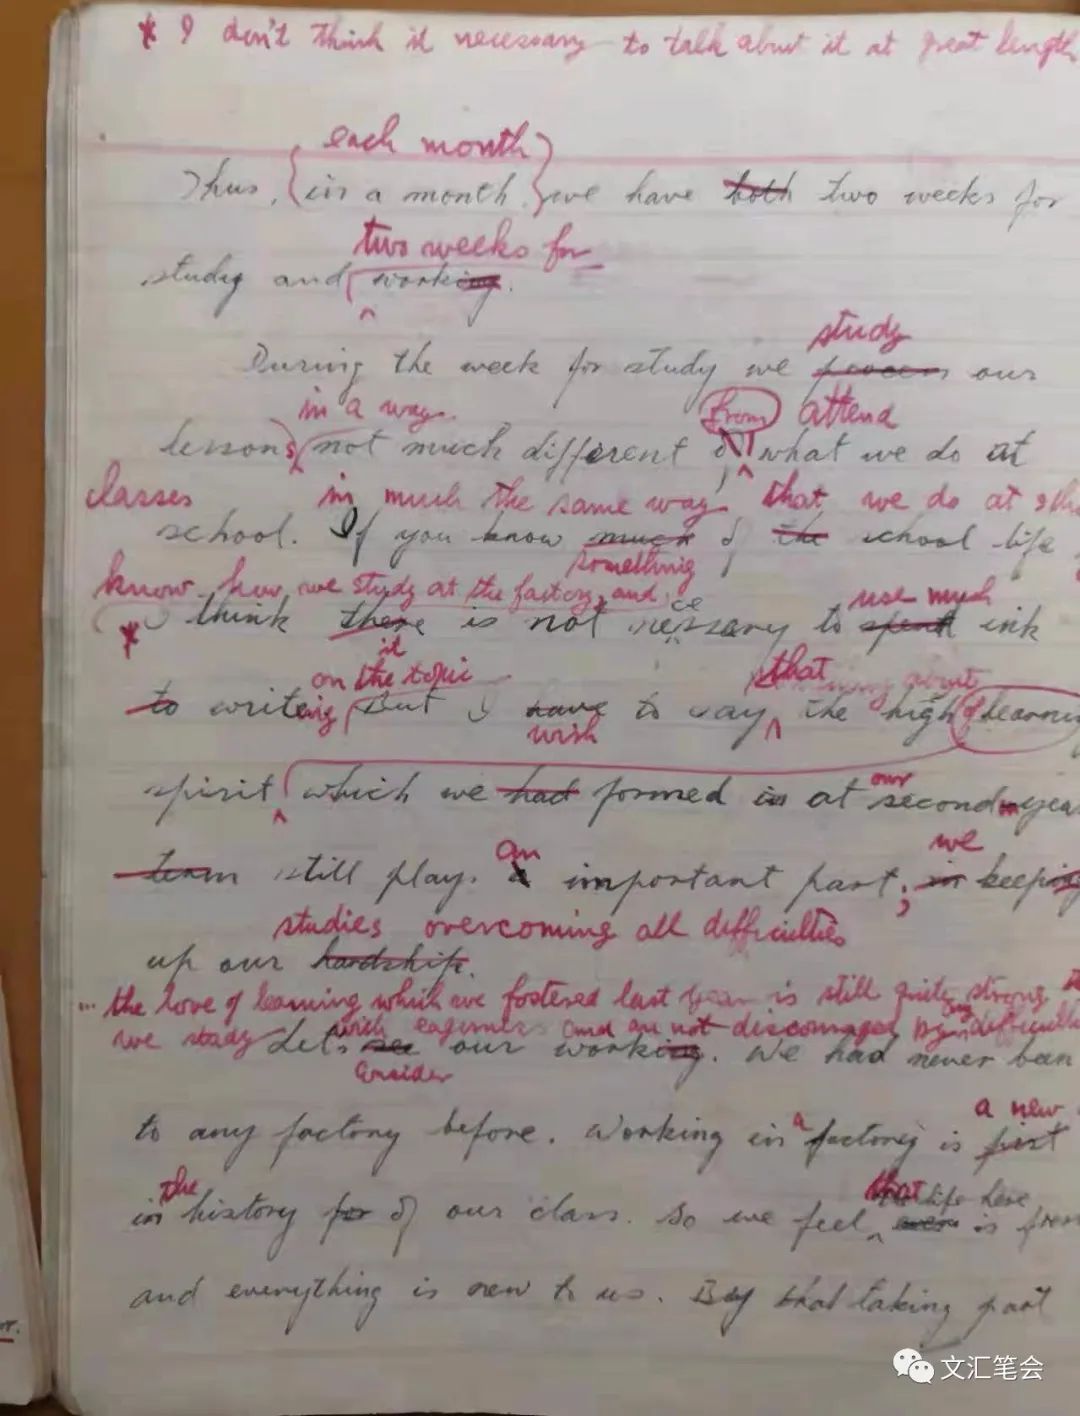 * I don't think it necessary to talk about it at great length
each month
Thus, (in a month,) we have both two weeks for
two weeks for
study and working.
study
During the week for study we process our
in a way from attend
lessons not much different of what we do at
classes in much the same way that we do at
school. If you know much of the school life
something
know how we study at the factory, and
I think there is not necessary to spent ink
use much
* it
on the topic that
to writeing But I have to say the high of learning
wish
spirit which we had formed in at our second year
an we
team still plays a important part, in keeping
studies overcoming all difficulties
up our hardship.
... the love of learning which we fostered last year is still quite strong
we study with eagerness and are not discouraged by any
Let's see our working. We had never been
Consider
a a new
to any factory before. Working in factory is first
the that life here
in history for of our class. So we feel even is
and everything is new to us. By that taking part
文汇笔会